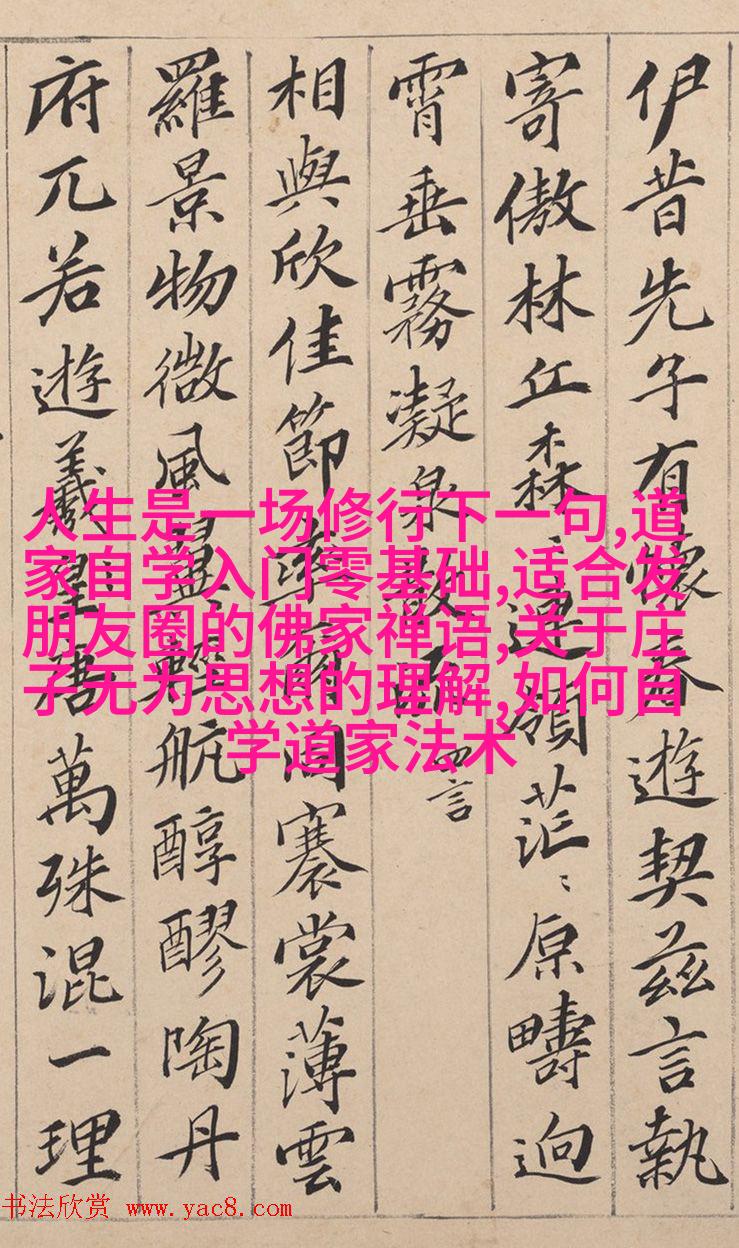 伊昔先子有懷春遊契茲言執
寄傲林丘森〻連嶺茫〻原疇逈
霄垂霧凝泉散溜 四言
相與欣佳節率爾同褰裳薄雲
羅景物微風翼輕航醇醪陶丹
府兀若遊羲皇唐萬殊混一理
人生是一场修行下一句,道
家自学入门零基础,适合发
朋友圈的佛家禅语,关于庄
子无为思想的理解,如何自
学道家法术
书法欣赏 www.yac8.com